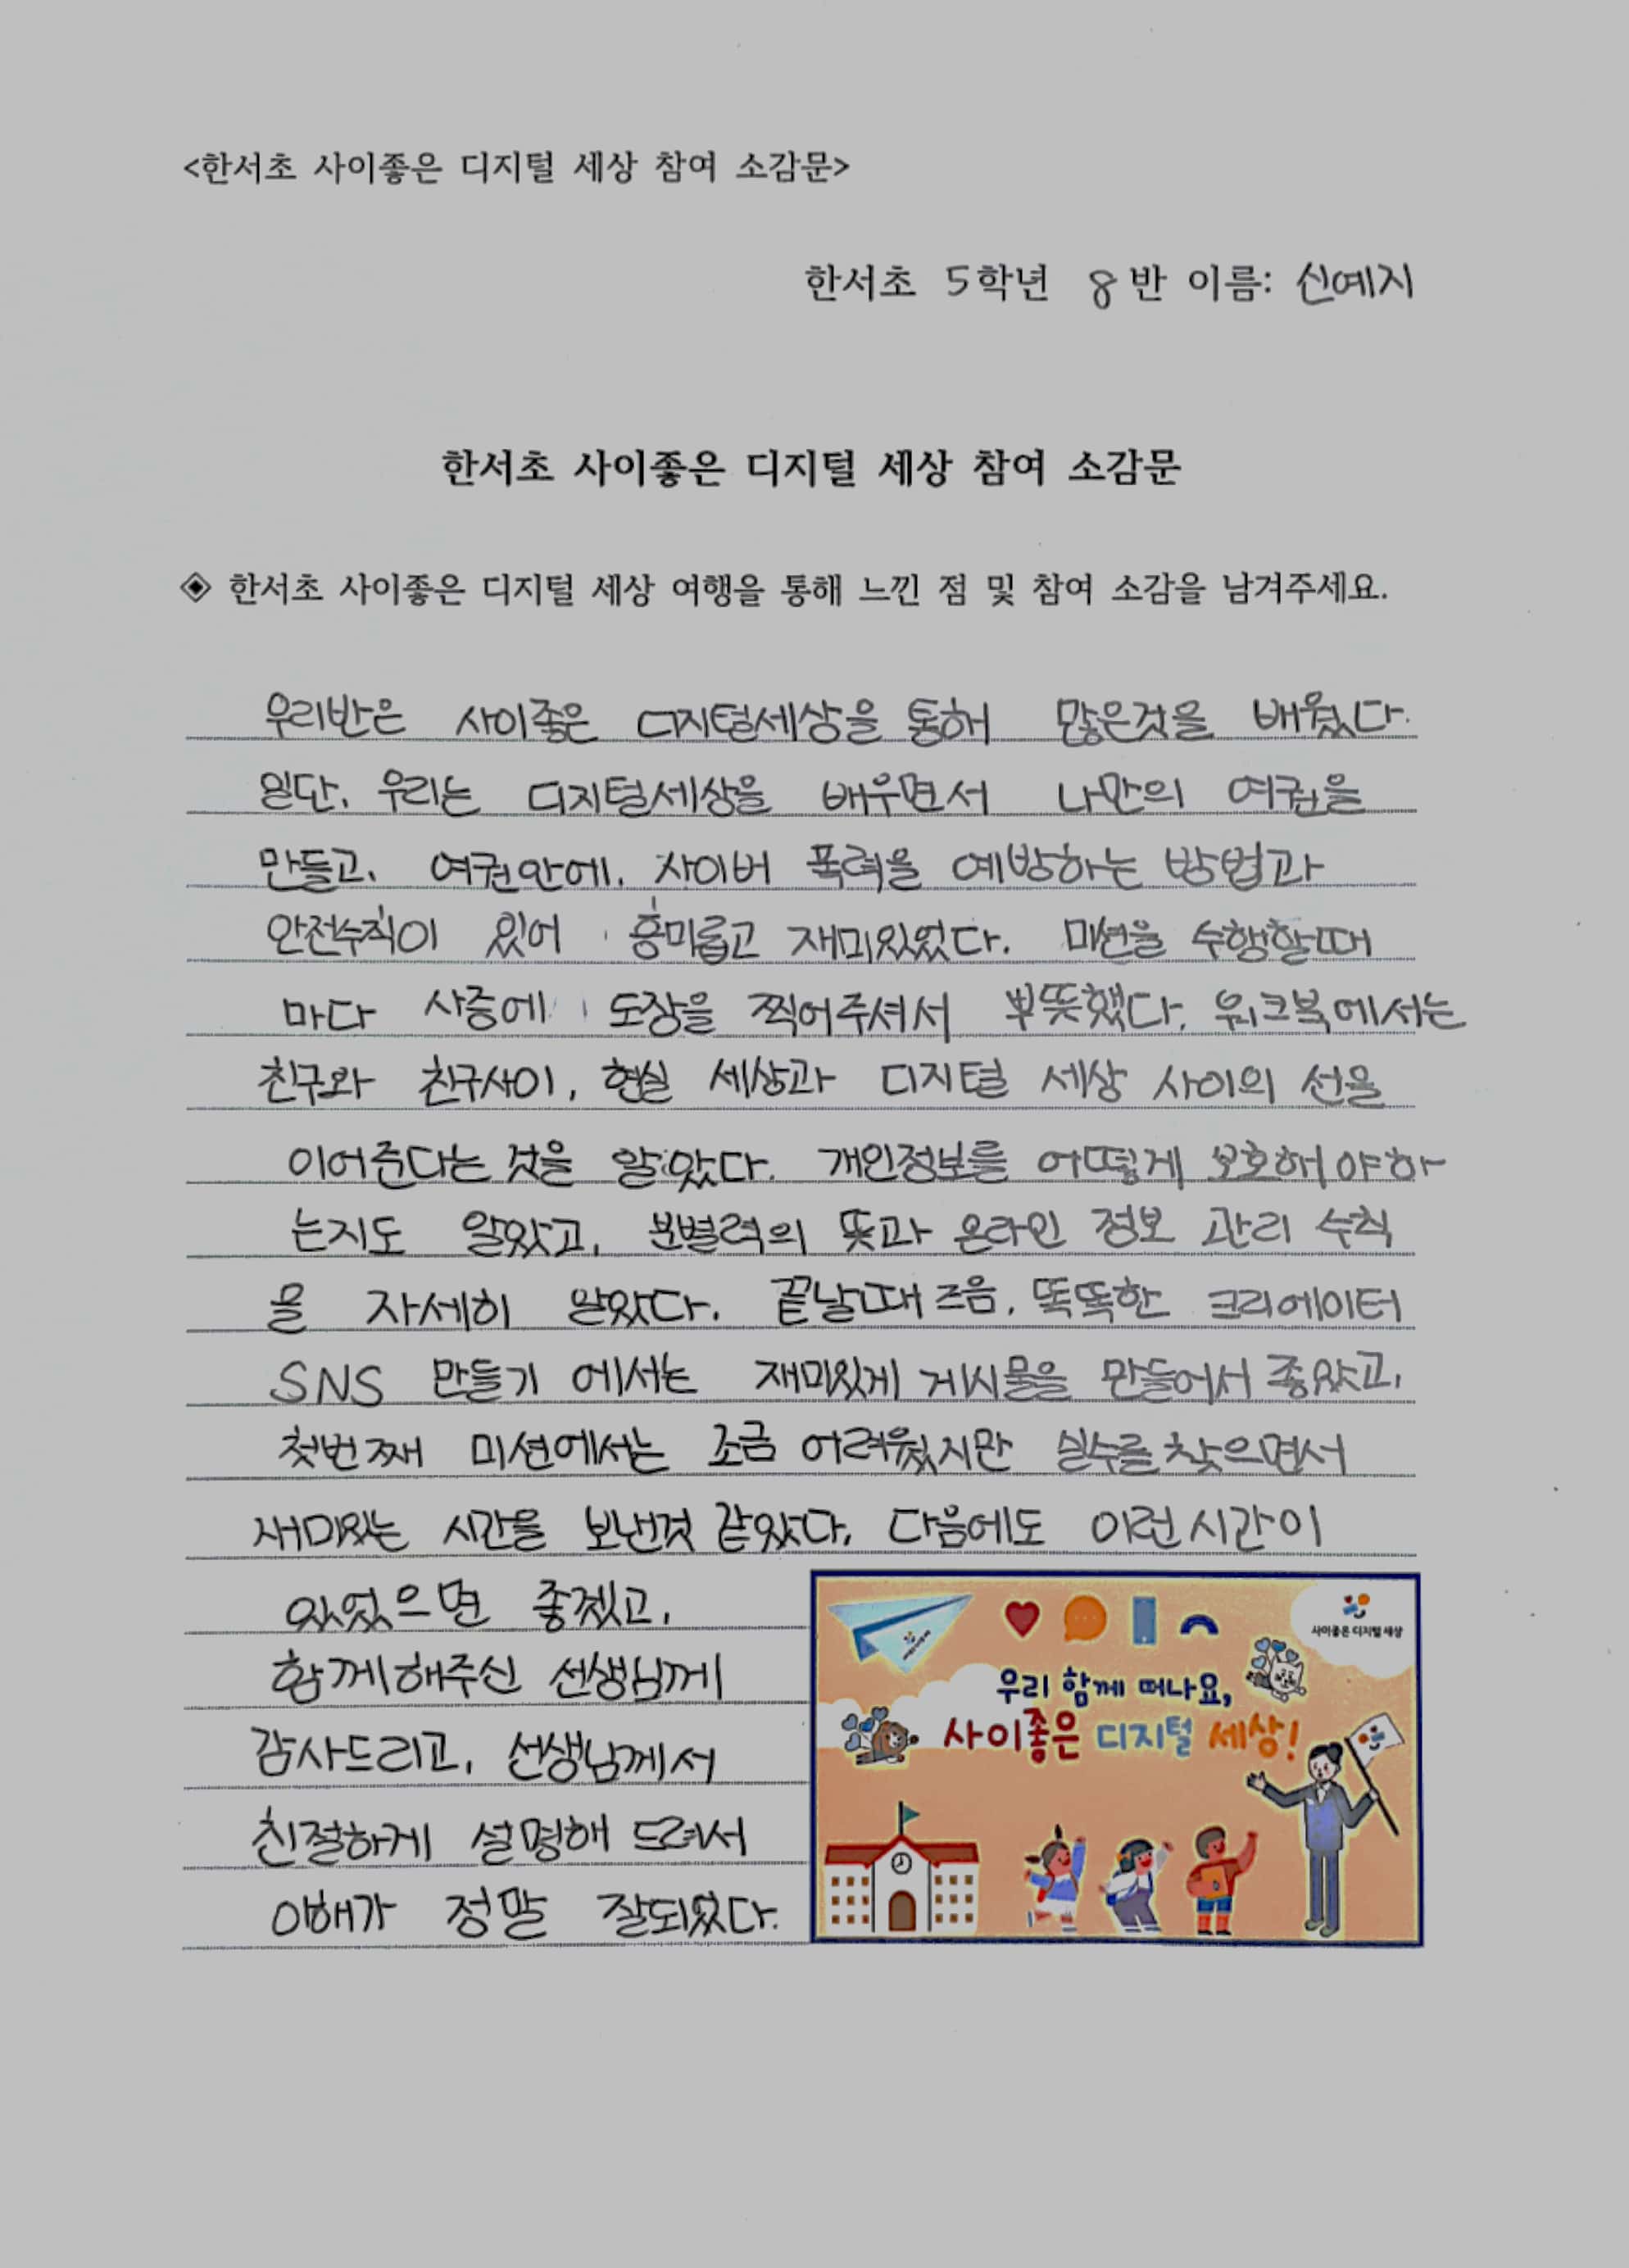 <한서초 사이좋은 디지털 세상 참여 소감문>
한서초 5학년 8반 이름: 신예지
한서초 사이좋은 디지털 세상 참여 소감문
◈ 한서초 사이좋은 디지털 세상 여행을 통해 느낀 점 및 참여 소감을 남겨주세요.
우리반은 사이좋은 디지털세상을 통해 많은것을 배웠다.
일단, 우리는 디지털세상을 배우면서 나만의 여권을
만들고, 여권안에, 사이버 폭력을 예방하는 방법과
안전수칙이 있어 흥미롭고 재미있었다. 미션을 수행할때
마다 사증에 도장을 찍어주셔서 뿌듯했다. 워크북에서는
친구와 친구사이, 현실 세상과 디지털 세상 사이의 선을
이어준다는 것을 알았다. 개인정보를 어떻게 보호해야하
는지도 알았고, 분별력의 뜻과 온라인 정보 관리 수칙
을 자세히 알았다. 끝날때 즈음, 똑똑한 크리에이터
SNS 만들기 에서는 재미있게 게시물을 만들어서 좋았고,
첫번째 미션에서는 조금 어려웠지만 실수를 찾으면서
재미있는 시간을 보낸것 같았다. 다음에도 이런시간이
있었으면 좋겠고,
함께해주신 선생님께
감사드리고, 선생님께서
친절하게 설명해 드려서
이해가 정말 잘되었다.
사이좋은 디지털 세상
우리 함께 떠나요,
사이좋은 디지털 세상!